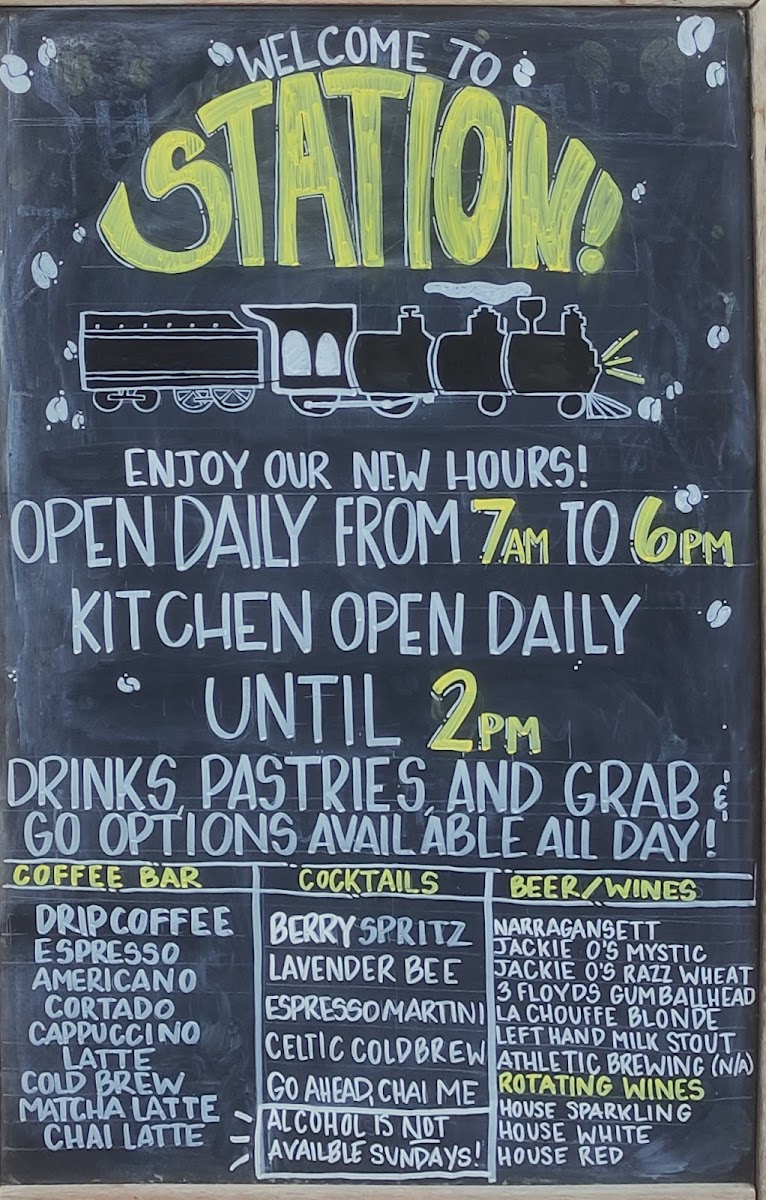 WELCOME TO
STATION!
ENJOY OUR NEW HOURS!
OPEN DAILY FROM 7AM TO 6PM
KITCHEN OPEN DAILY
UNTIL 2PM
DRINKS, PASTRIES, AND GRAB &
GO OPTIONS AVAILABLE ALL DAY!
COFFEE BAR
DRIP COFFEE
ESPRESSO
AMERICANO
CORTADO
CAPPUCCINO
LATTE
COLD BREW
MATCHA LATTE
CHAI LATTE
COCKTAILS
BERRY SPRITZ
LAVENDER BEE
ESPRESSO MARTINI
CELTIC COLD BREW
GO AHEAD, CHAI ME
ALCOHOL IS NOT
AVAILBLE SUNDAYS!
BEER/WINES
NARRAGANSETT
JACKIE O'S MYSTIC
JACKIE O'S RAZZ WHEAT
3 FLOYDS GUMBALLHEAD
LA CHOUFFE BLONDE
LEFT HAND MILK STOUT
ATHLETIC BREWING (N/A)
ROTATING WINES
HOUSE SPARKLING
HOUSE WHITE
HOUSE RED